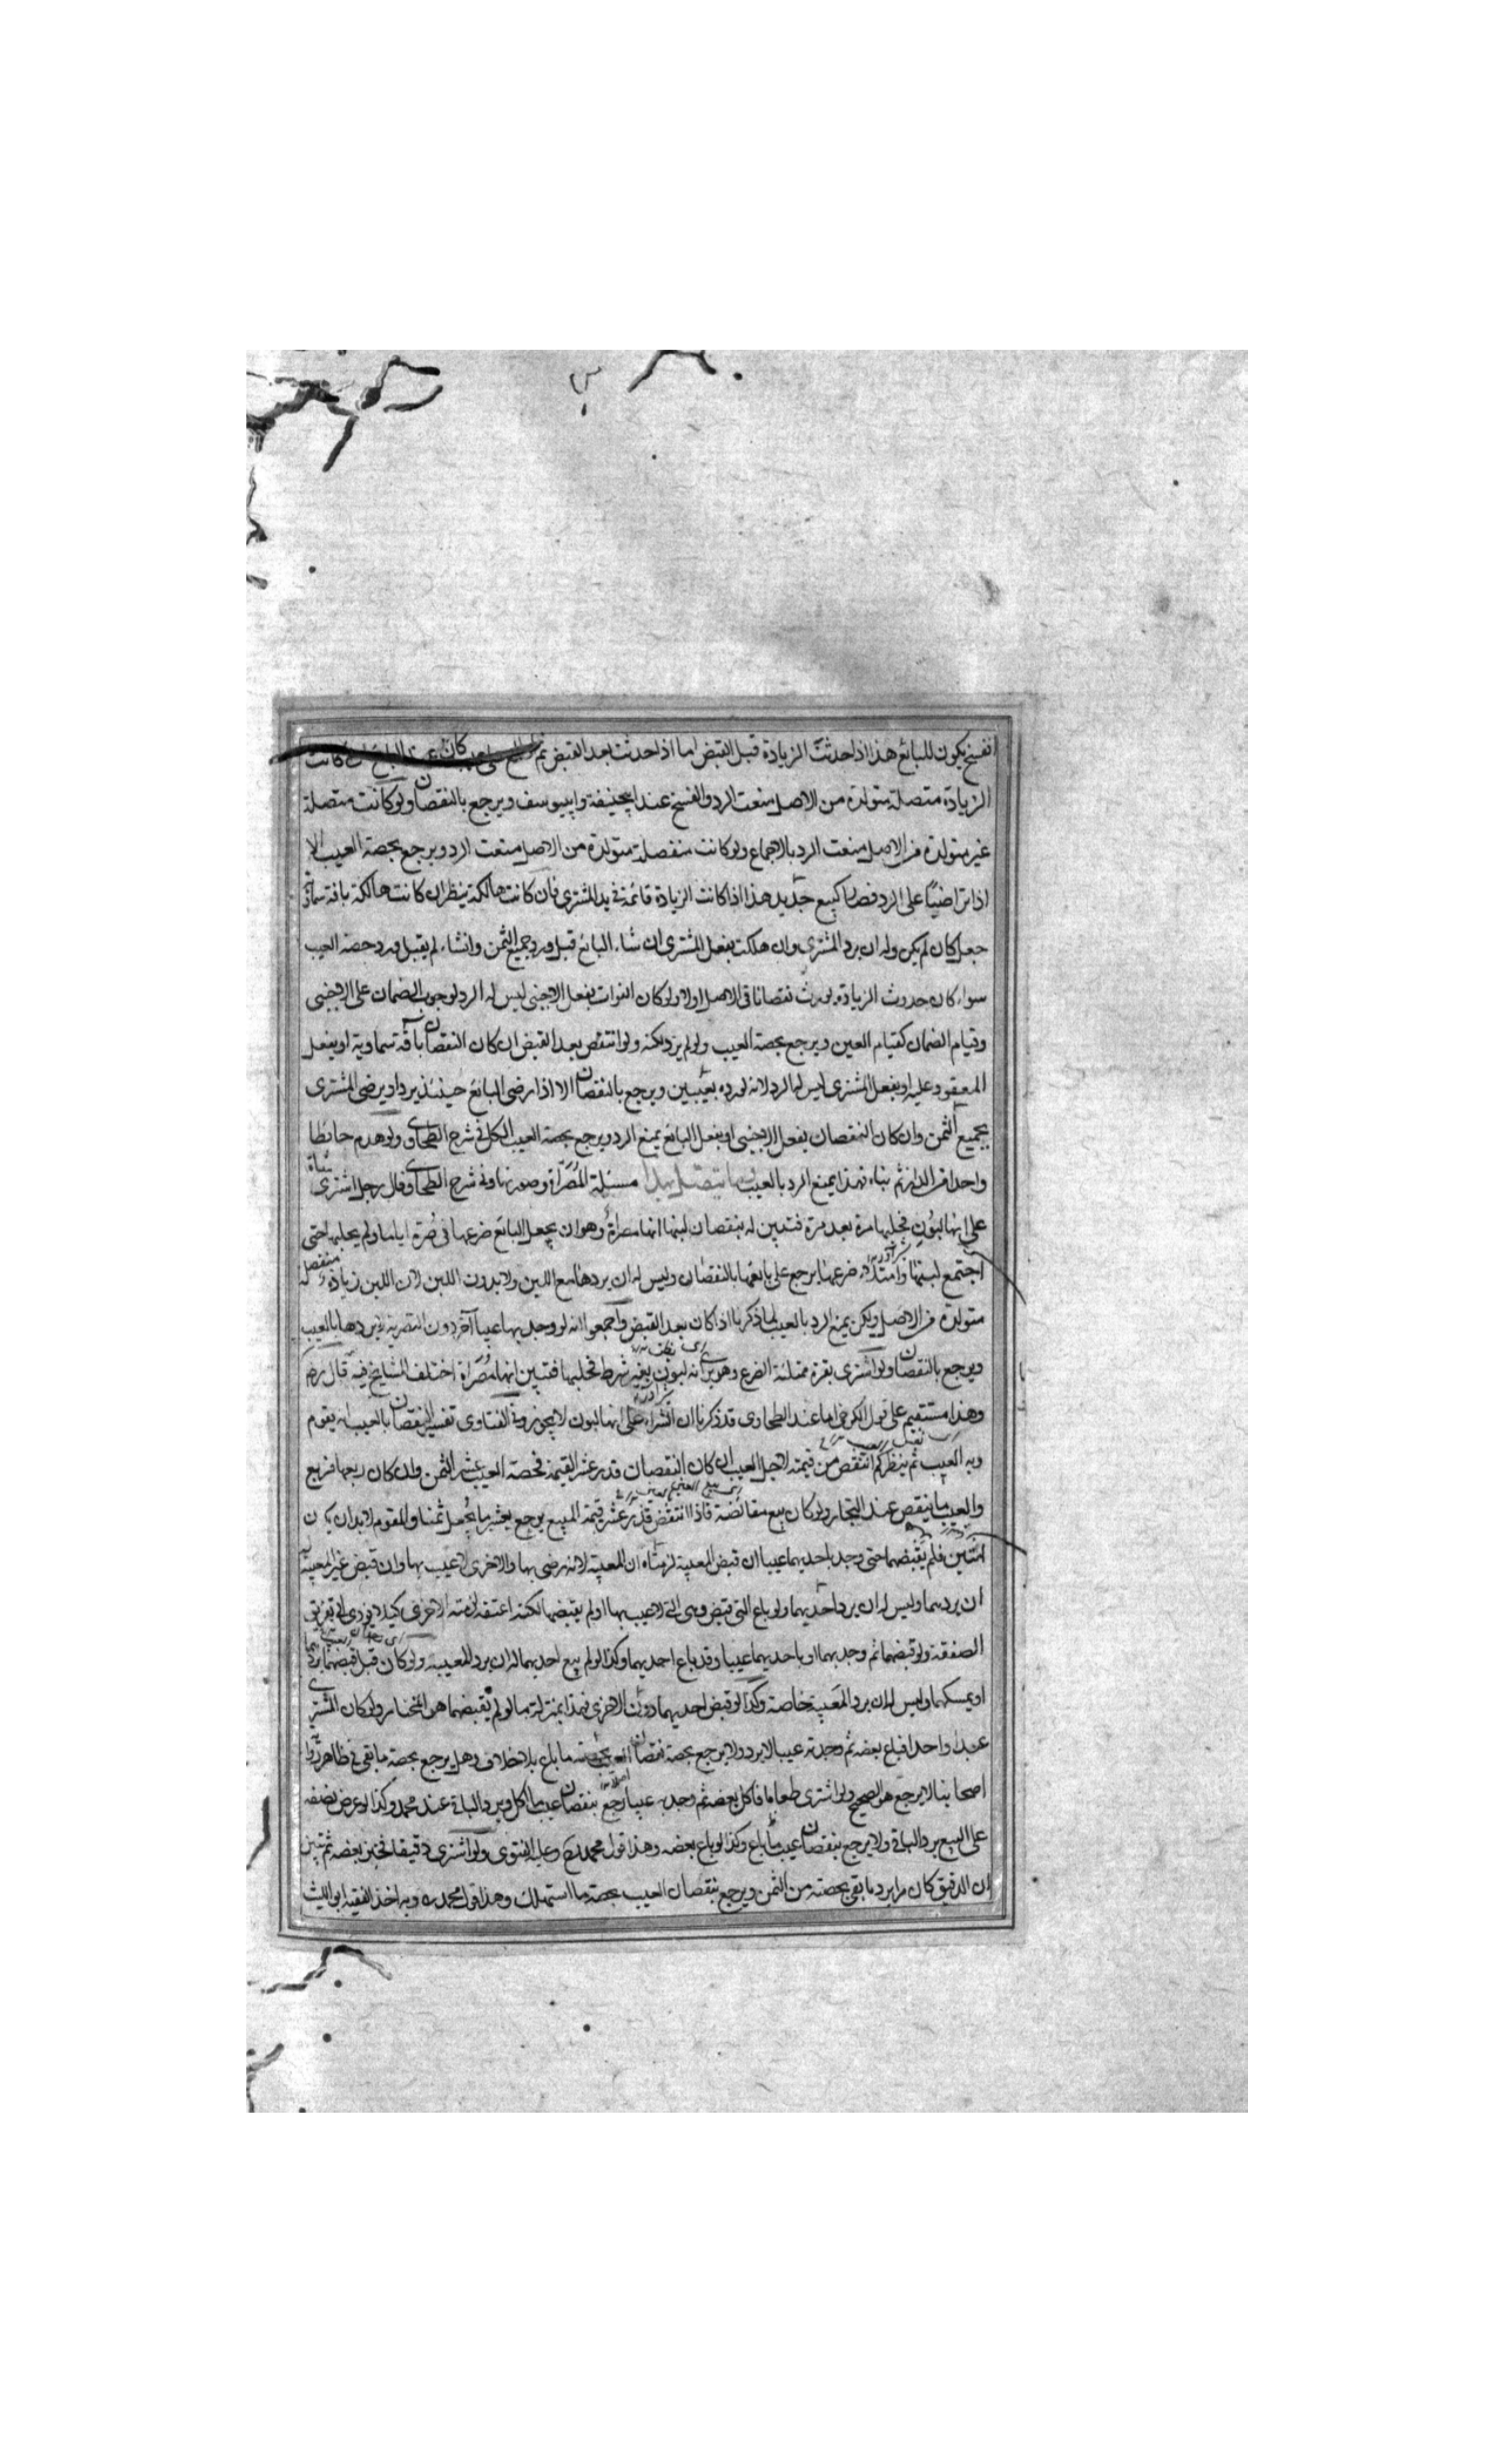 انفسخ يكون للبائع هذا اذا حدثت الزيادة قبل القبض اما اذا حدثت بعد القبض ثم كان عند البائع كانت
الزيادة متصلة متولدة من الاصل منعت الرد والفسخ عند ابيحنيفة وابييوسف ويرجع بالنقصان ولو كانت متصلة
غير متولدة من الاصل منعت الرد بالاجماع ولو كانت منفصلة متولدة من الاصل منعت الرد ويرجع بحصة العيب الا
اذا تراضيا على الرد فصار كبيع جديد هذا اذا كانت الزيادة قائمة في يد المشتري فان كانت هالكة ينظر ان كانت هالكة بافة سماوية
جعل كان لم يكن وله ان يرد المشترى وان هلكت بفعل المشترى ان شاء البائع قبل ورد جميع الثمن وانشاء لم يقبل ورد حصة العيب
سواء كان حدوث الزيادة يورث نقصانا في الاصل اولا ولو كان الفوات بفعل الاجنبى ليس له الرد لوجوب الضمان على الاجنبى
وقيام الضمان كقيام العين ويرجع بحصة العيب ولو لم يزد لكنه ولو انتقص بعد القبض ان كان النقصان بافة سماوية او بفعل
المعقود عليه او بفعل المشترى ليس له الرد لانه لو رده بعيبين ويرجع بالنقصان الا اذا رضى البائع حينئذ يرد او يرضى المشترى
بجميع الثمن وان كان النقصان بفعل الاجنبى او بفعل البائع يمنع الرد ويرجع بحصة العيب الكل في شرح الطحاوى ولو هدم حائطا
واحدا من الدار ثم بناه فهذا يمنع الرد بالعيب ومما يتصل بهذا مسئلة المصراة وصورتها وفي شرح الطحاوى قال رجل اشترى شاة
على انها لبون فحلبها مرة بعد مرة فتبين له بنقصان لبنها انها مصراة وهو ان يجعل البائع ضرعها في صرة اياما ولم يحلبها حتى
اجتمع لبنها وامتلاء ضرعها يرجع على بائعها بالنقصان وليس له ان يردها مع اللبن ولا بدون اللبن لان اللبن زيادة منفصلة
متولدة من الاصل ولكن يمنع الرد بالعيب لما ذكرنا اذا كان بعد القبض واجمعوا انه لو وجد بها عيبا آخر دون التصرية لا يردها بالعيب
ويرجع بالنقصان ولو اشترى بقرة ممتلئة الضرع وهو يرى انه لبون بغير شرط فحلبها فتبين انها مصراة اختلف المشايخ فيه قال رض
وهذا مستقيم على قول الكرخى اما عند الطحاوى قد ذكرنا ان الشراء على انها لبون لا يجوز وفي الفتاوى تفسير النقصان بالعيب ان يقوم
وبه العيب ثم ينظر كم انتقص من قيمته لاجل العيب ان كان النقصان قدر عشر القيمة فحصة العيب عشر الثمن وان كان ربعها فربع
والعيب ما ينقص عند التجار ولو كان بيع مقائضة فاذا انتقض قدر عشر قيمة المبيع يرجع بعشر ما يجعل ثمنا والمقوم لابد ان يكون
اثنين فلم يقبضهما حتى وجد باحديهما عيبا ان قبض المعيبة لزمتاه ان المعيبة لانه رضى بها والاخرى لاعيب بها وان قبض غير المعيبة
ان يردهما وليس له ان يرد احديهما ولو باع التى قبض وهى التى لاعيب بها او لم يقبضها لكنه اعتقه لزمته الاخرى كيلا يؤدى الى تفريق
الصفقة ولو قبضهما ثم وجد بهما او باحديهما عيبا وقد باع احديهما وكذا لو لم يبع احديهما له ان يرد المعيبة ولو كان قبل قبضهما يردهما
او يمسكهما وليس له ان يرد المعيبة خاصة وكذا لو قبض احديهما دون الاخرى فهذا بمنزلة ما لو لم يقبضهما هو المختار ولو كان المشترى
عبدا واحدا فباع بعضه ثم وجد به عيبا لا يرد ولا يرجع بحصة نقصان العيب بحصته ما باع بلا خلاف وهل يرجع بحصة ما بقى في ظاهر رواية
اصحابنا لا يرجع هو الصحيح ولو اشترى طعاما فاكل بعضه ثم وجد به عيبا رجع بنقصان عيب ما اكل ويرد الباقى عند محمد وكذا لو عرض نصفه
على البيع يرد الباقى ولا يرجع بنقصان عيب ما باع وكذا لو باع بعضه وهذا قول محمد رح وعليه الفتوى ولو اشترى دقيقا فخبز بعضه ثم تبين
ان الدقيق كان مرا يرد ما بقى بحصته من الثمن ويرجع بنقصان العيب بحصة ما استهلك وهذا قول محمد ره وبه اخذ الفقيه ابو الليث